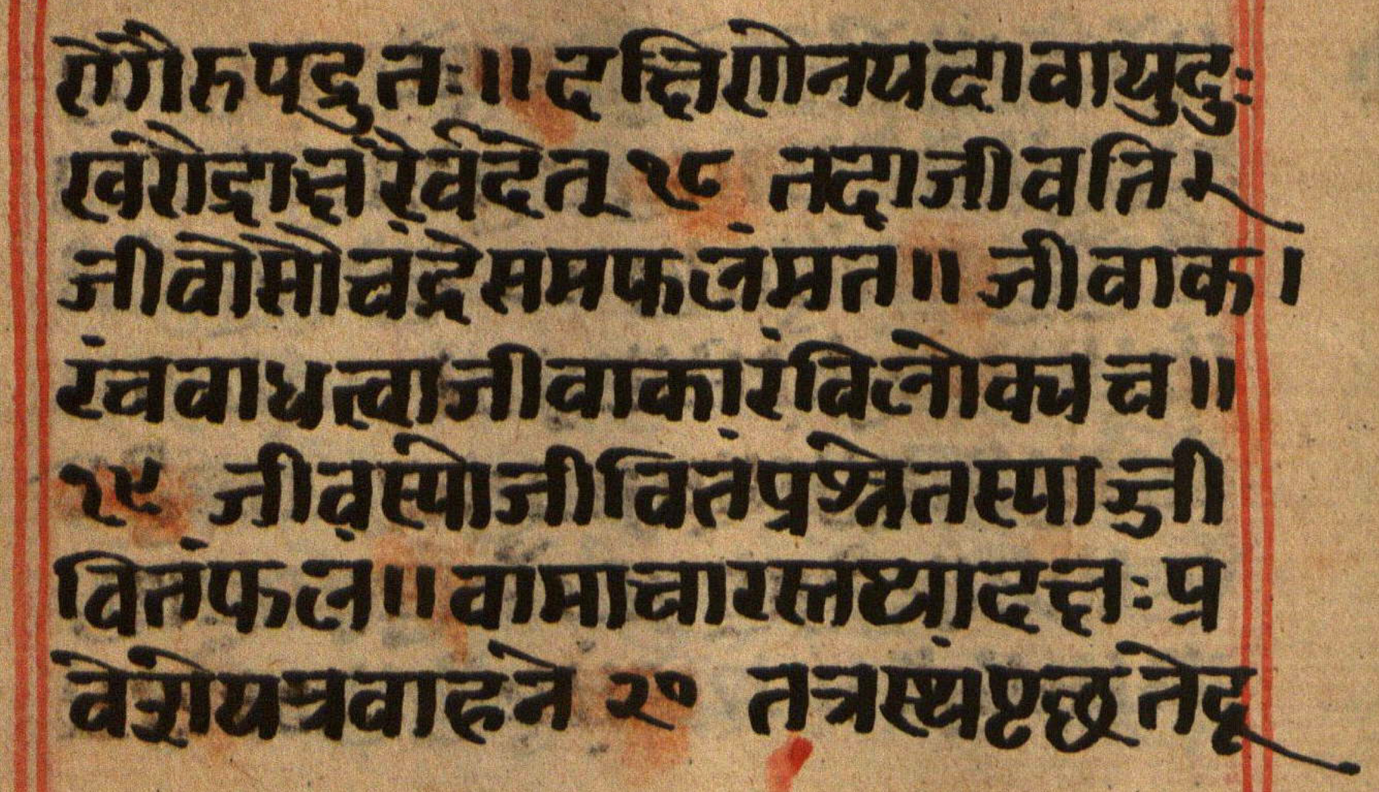 रोगैरुपद्रुतः॥ दक्षिणेनयदावायुदुः
खंरौद्राक्षरैर्वदेत् १८ तदाजीवति
जीवोसौचंद्रेसमफलंमत॥ जीवाका
रंचवाधृत्वाजीवाकारंविलोक्यच॥
१९ जीवस्योजीवितंप्रश्नेतस्याज्जी
वितंफल॥ वामाचारस्तथादक्षःप्र
वेशेयत्रवाहने २० तत्रस्थंपृछतेदू